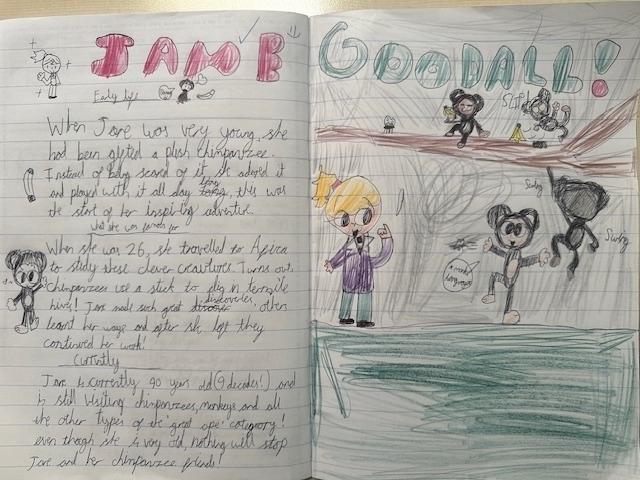 JANE GOODALL!
Early life
When Jane was very young, she
had been gifted a plush chimpanzee.
Instead of being scared of it, she adored it
and played with it all day long, this was
the start of her inspiring adventure.
what she was famous for
When she was 26, she travelled to Africa
to study these clever creatures. Turns out,
Chimpanzees use a stick to dig in termite
hives! Jane made such great discoveries, others
learnt her ways and after she left they
continued her work!
Currently
Jane is currently 90 years old (9 decades!) and
is still visiting chimpanzees, monkeys and all
the other types of the great ape category!
even though she is very old, nothing will stop
Jane and her chimpanzee friends!
SLIP!
Swing
Swing